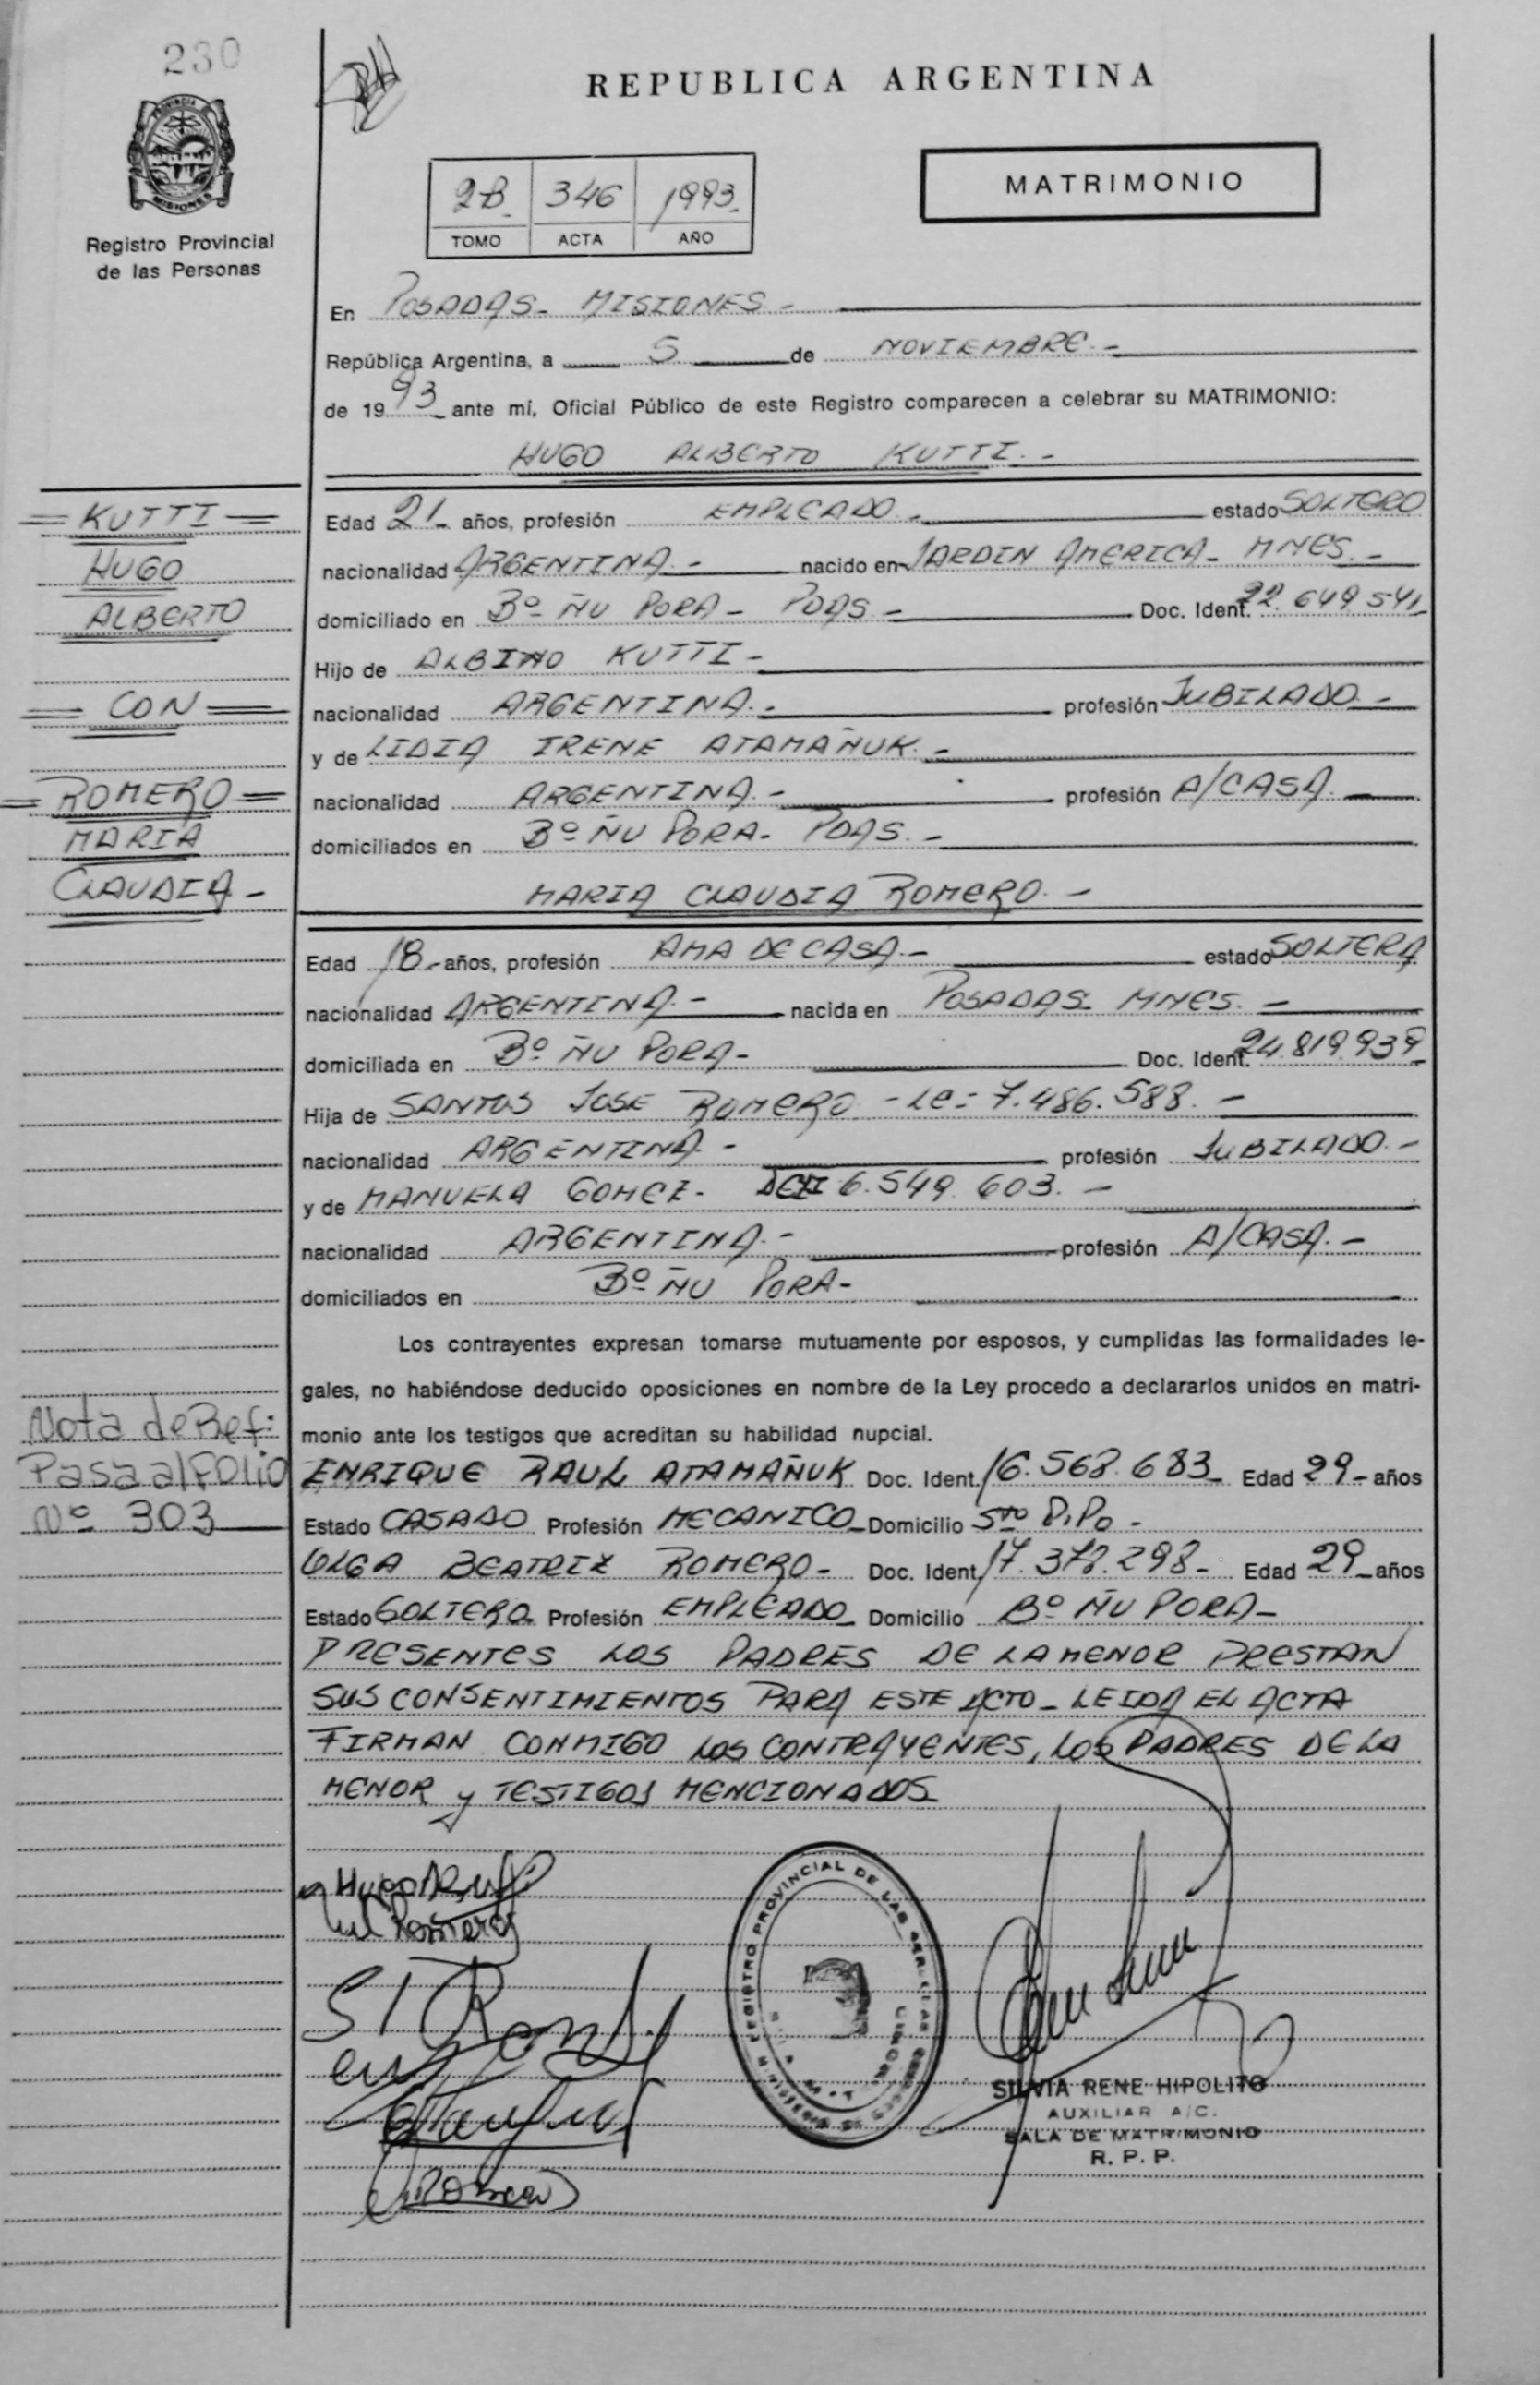 230
REPUBLICA ARGENTINA
PROVINCIA
MISIONES
Registro Provincial
de las Personas
2B 346 1993
TOMO ACTA AÑO
MATRIMONIO
En POSADAS - MISIONES -
República Argentina, a 5 de NOVIEMBRE -
de 1993 ante mí, Oficial Público de este Registro comparecen a celebrar su MATRIMONIO:
HUGO ALBERTO KUTTI -
Edad 21 años, profesión EMPLEADO - estado SOLTERO
nacionalidad ARGENTINA - nacido en JARDIN AMERICA - MNES -
domiciliado en Bº ÑU PORA - PDAS - Doc. Ident. 22.649.541
Hijo de ALBINO KUTTI -
nacionalidad ARGENTINA - profesión JUBILADO -
y de LIDIA IRENE ATAMAÑUK -
nacionalidad ARGENTINA - profesión A/CASA -
domiciliados en Bº ÑU PORA - PDAS -
MARIA CLAUDIA ROMERO -
Edad 18 - años, profesión AMA DE CASA - estado SOLTERA
nacionalidad ARGENTINA - nacida en POSADAS MNES -
domiciliada en Bº ÑU PORA - Doc. Ident. 24.819.939
Hija de SANTOS JOSE ROMERO - LE: 7.486.588 -
nacionalidad ARGENTINA - profesión JUBILADO -
y de MANUELA GOMEZ - 6.549.603 -
nacionalidad ARGENTINA - profesión A/CASA -
domiciliados en Bº ÑU PORA -
Los contrayentes expresan tomarse mutuamente por esposos, y cumplidas las formalidades le-
gales, no habiéndose deducido oposiciones en nombre de la Ley procedo a declararlos unidos en matri-
monio ante los testigos que acreditan su habilidad nupcial.
ENRIQUE RAUL ATAMAÑUK Doc. Ident. 16.568.683 - Edad 29 - años
Estado CASADO Profesión MECANICO - Domicilio Sto P.Po -
OLGA BEATRIZ ROMERO - Doc. Ident. 17.378.298 - Edad 29 - años
Estado SOLTERA Profesión EMPLEADO Domicilio Bº ÑU PORA -
PRESENTES LOS PADRES DE LA MENOR PRESTAN
SUS CONSENTIMIENTOS PARA ESTE ACTO - LEIDA EL ACTA
FIRMAN CONMIGO LOS CONTRAYENTES, LOS PADRES DE LA
MENOR y TESTIGOS MENCIONADOS
= KUTTI =
HUGO
ALBERTO
= CON =
= ROMERO =
MARIA
CLAUDIA -
Nota de Ref:
Pasa al Folio
Nº 303
REGISTRO PROVINCIAL DE LAS
SILVIA RENE HIPOLITO
AUXILIAR A/C.
SALA DE MATRIMONIO
R. P. P.